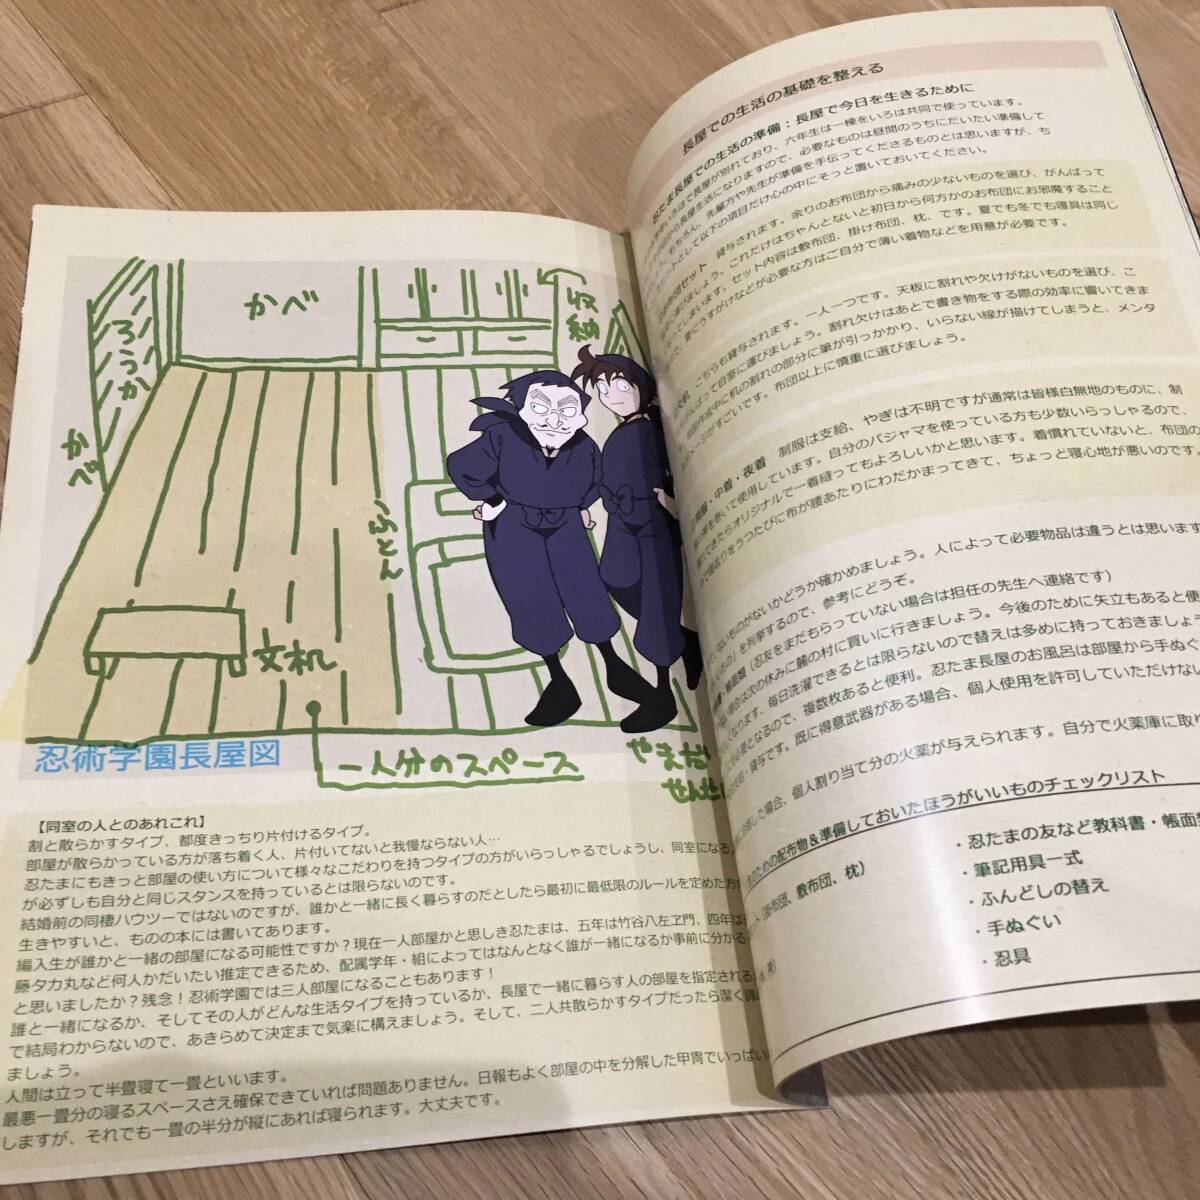 かべ
収納
ろうか
かべ
ふとん
文机
忍術学園長屋図
一人分のスペース
やまだ
せんせ
【同室の人とのあれこれ】
割と散らかすタイプ、都度きっちり片付けるタイプ。
部屋が散らかっている方が落ち着く人、片付いてないと我慢ならない人…
忍たまにもきっと部屋の使い方について様々なこだわりを持つタイプの方がいらっしゃるでしょうし、同室になる
が必ずしも自分と同じスタンスを持っているとは限らないのです。
結婚前の同棲ハウツーではないのですが、誰かと一緒に長く暮らすのだとしたら最初に最低限のルールを定めた方が
生きやすいと、ものの本には書いてあります。
編入生が誰かと一緒の部屋になる可能性ですか？現在一人部屋かと思しき忍たまは、五年は竹谷八左ヱ門、四年は
藤タカ丸など何人かだいたい推定できるため、配属学年・組によってはなんとなく誰が一緒になるか事前に分かる
と思いましたか？残念！忍術学園では三人部屋になることもあります！
誰と一緒になるか、そしてその人がどんな生活タイプを持っているか、長屋で一緒に暮らす人の部屋を指定される
で結局わからないので、あきらめて決定まで気楽に構えましょう。そして、二人共散らかすタイプだったら潔く
ましょう。
人間は立って半畳寝て一畳といいます。
最悪一畳分の寝るスペースさえ確保できていれば問題ありません。日報もよく部屋の中を分解した甲冑でいっぱい
しますが、それでも一畳の半分が縦にあれば寝られます。大丈夫です。
長屋での生活の基礎を整える
忍たま長屋での生活の準備：長屋で今日を生きるために
いろはで長屋が別れており、六年生は一棟をいろは共同で使っています。
の日から長屋生活になりますので、必要なものは昼間のうちにだいたい準備して
もちろん、先輩方や先生が準備を手伝ってくださるものとは思いますが、ち
ントとして以下の項目だけ心の中にそっと置いておいてください。
セット　貸与されます。余りのお布団から痛みの少ないものを選び、がんばって
運びましょう。これだけはちゃんとないと初日から何方かのお布団にお邪魔すること
なってしまいます。セット内容は敷布団、掛け布団、枕、です。夏でも冬でも寝具は同じ
で、夏にうすがけなどが必要な方はご自分で薄い着物などを用意が必要です。
文机　こちらも貸与されます。一人一つです。天板に割れや欠けがないものを選び、こ
がんばって自室に運びましょう。割れ欠けはあとで書き物をする際の効率に響いてきま
地図作成中に机の割れの部分に筆が引っかかり、いらない線が描けてしまうと、メンタ
メージがすごいです。布団以上に慎重に選びましょう。
制服・中着・夜着　制服は支給、やぎは不明ですが通常は皆様白無地のものに、制
帯を巻いて使用しています。自分のパジャマを使っている方も少数いらっしゃるので、
れてきたらオリジナルで一着縫ってもよろしいかと思います。着慣れていないと、布団の
で寝返りをうつたびに布が腰あたりにわだかまってきて、ちょっと寝心地が悪いのです。
ないものがないかどうか確かめましょう。人によって必要物品は違うとは思います
いもの」を列挙するので、参考にどうぞ。
帳面類（忍友をまだもらっていない場合は担任の先生へ連絡です）
い場合は次の休みに麓の村に買いに行きましょう。今後のために矢立もあると便
くなります、毎日洗濯できるとは限らないので替えは多めに持っておきましょう
にも必要となるので、複数枚あると便利。忍たま長屋のお風呂は部屋から手ぬぐ
支給・貸与です。既に得意武器がある場合、個人使用を許可していただけない
した場合、個人割り当て分の火薬が与えられます。自分で火薬庫に取り
のための配布物＆準備しておいたほうがいいものチェックリスト
（掛布団、敷布団、枕）
・忍たまの友など教科書・帳面類
・筆記用具一式
・ふんどしの替え
・手ぬぐい
・忍具